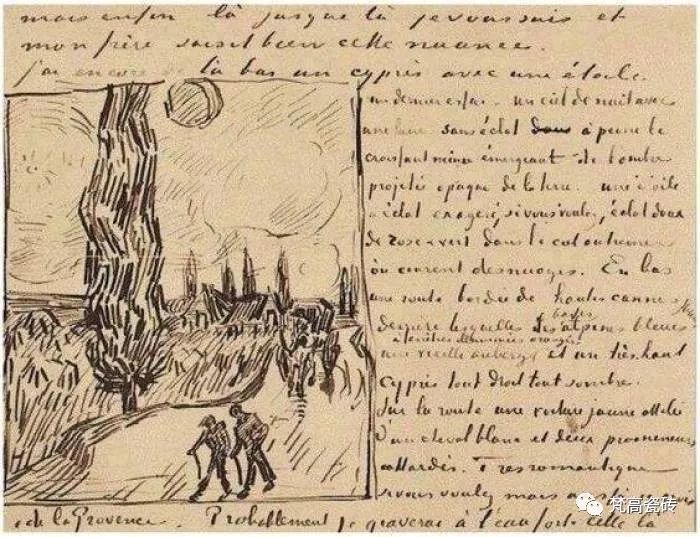 mais enfin là jusque là je vous sais et
mon frère saisit bien cette nuance.
j'ai encore de là bas un cyprès avec une étoile
un dernier essai. un ciel de nuit avec
une lune sans éclat dans à peine le
croissant mince émergeant de l'ombre
projetée opaque de la terre. une étoile
à éclat exagéré, si vous voulez, éclat doux
de rose & vert dans le ciel outremer
où courent des nuages. En bas
une route bordée de hautes cannes
derrière lesquelles les basses alpines bleues
une vieille auberge à fenêtres illuminées orangées et un très haut
cyprès tout droit tout sombre.
Sur la route une voiture jaune attelée
d'un cheval blanc et deux promeneurs
attardés. Très romantique
si vous voulez mais
de la Provence. Probablement je graverai à l'eau forte celle là
梵高瓷砖